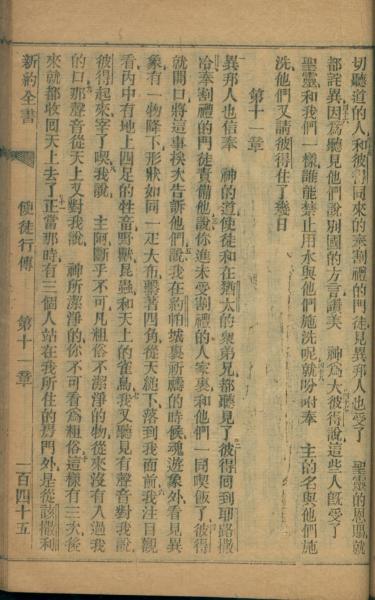 切聽道的人和彼得同來的奉割禮的門徒見異邦人也受了　聖靈的恩賜就
都詫異因爲聽見他們說別國的方言讚美　神爲大彼得說這些人旣受了
聖靈和我們一樣誰能禁止用水與他們施洗呢就吩咐奉　主的名與他們施
洗他們又請彼得住了幾日
第十一章
異邦人也信奉　神的道使徒和在猶太的衆弟兄都聽見了彼得回到耶路撒
冷奉割禮的門徒責備他說你進未受割禮的人家裏和他們一同喫飯了彼得
就開口將這事挨次告訴他們說我在約帕城裏祈禱的時候魂遊象外看見異
象有一物降下形狀如同一疋大布繫著四角從天縋下落到我面前我注目觀
看內中有地上四足的牲畜野獸昆蟲和天上的雀鳥我又聽見有聲音對我說
彼得起來宰了喫我說　主阿斷乎不可凡粗俗不潔淨的物從來沒有入過我
的口那聲音從天上又對我說　神所潔淨的你不可看爲粗俗這樣有三次後
來就都收回天上去了正當那時有三個人站在我所住的房門外是從該撒利
新約全書　使徒行傳　第十一章　一百四十五